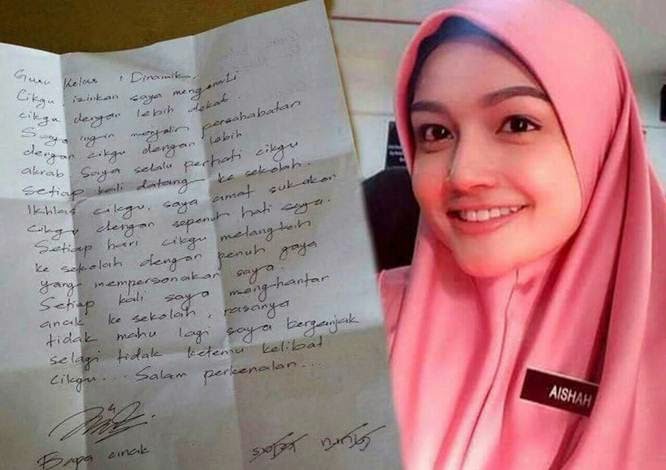 Guru Kelas 1 Dinamik,
Cikgu, izinkan saya mengenali
cikgu dengan lebih dekat.
Saya ingin menjalin persahabatan
dengan cikgu dengan lebih
akrab. Saya selalu perhati cikgu
setiap kali datang ke sekolah.
Ikhlas cikgu, saya amat sukakan
cikgu dengan sepenuh hati saya.
Setiap hari cikgu melangkah
ke sekolah dengan penuh gaya
yang mempersonakan saya.
Setiap kali saya menghantar
anak ke sekolah, rasanya
tidak mahu lagi saya berganjak
selagi tidak ketemu kelibat
cikgu... Salam perkenalan...
Bapa anak
AISHAH